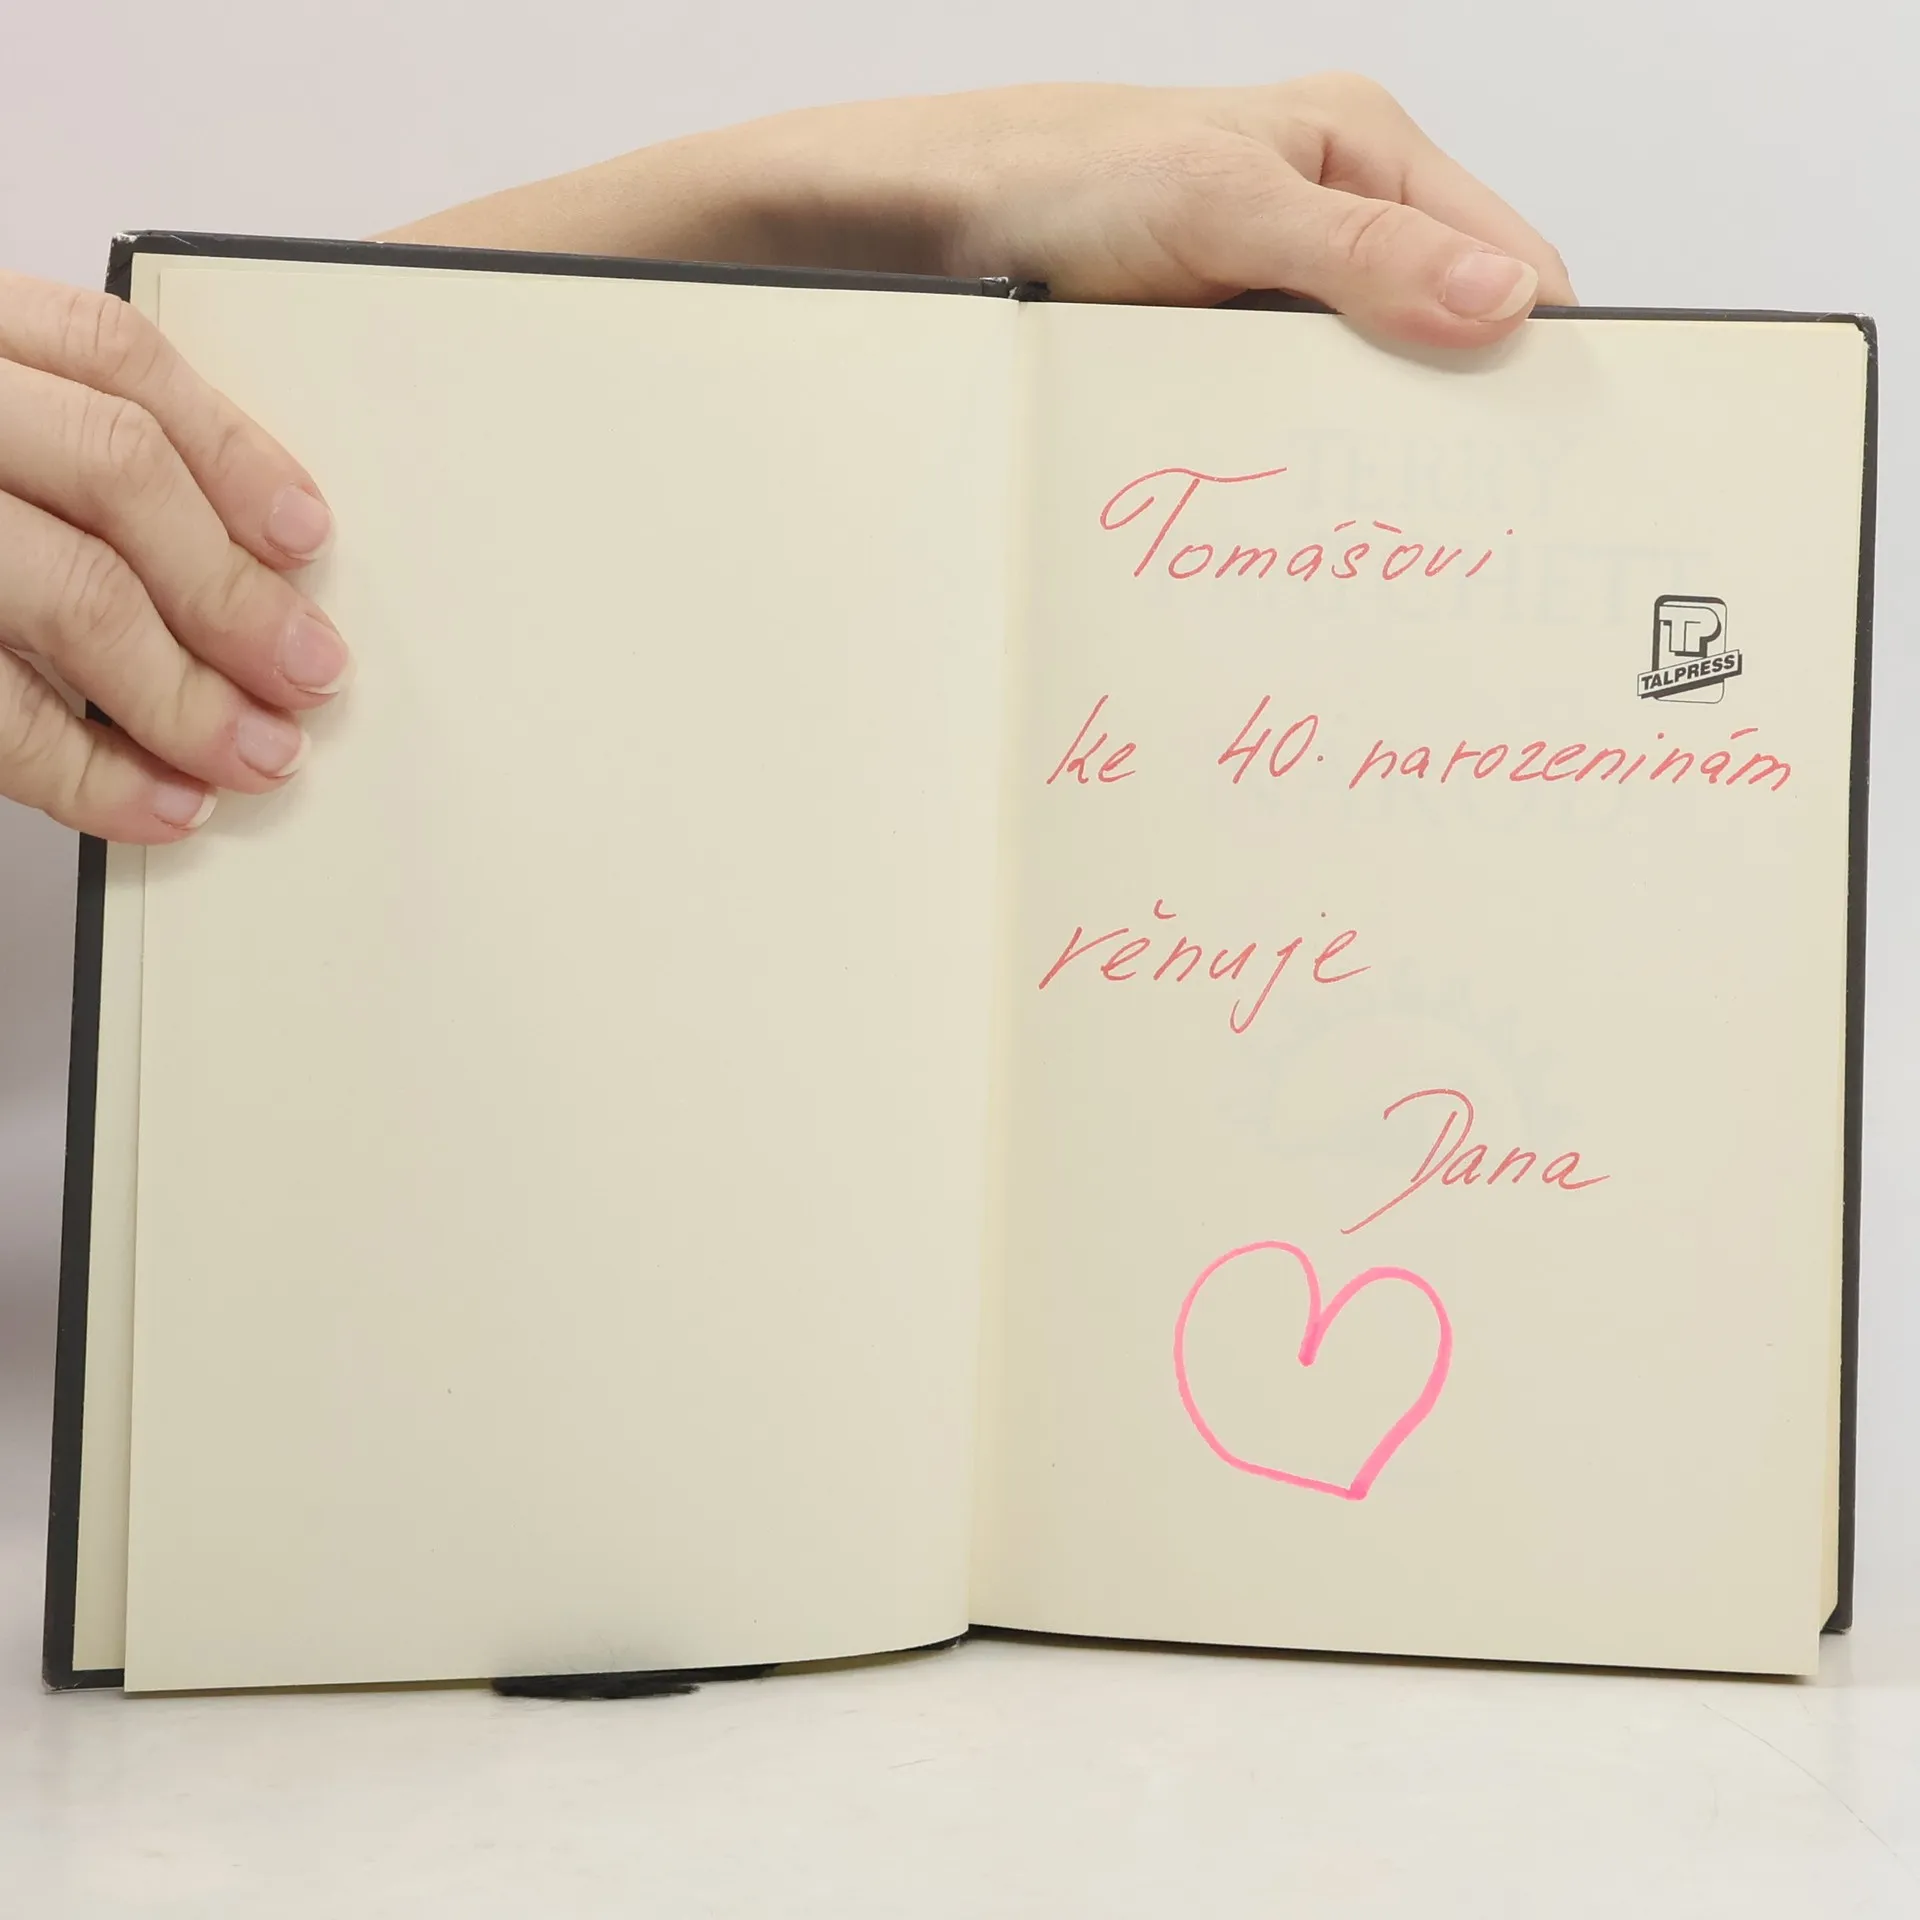 Tomášovi
TP
TALPRESS
ke 40. narozeninám
věnuje
Dana